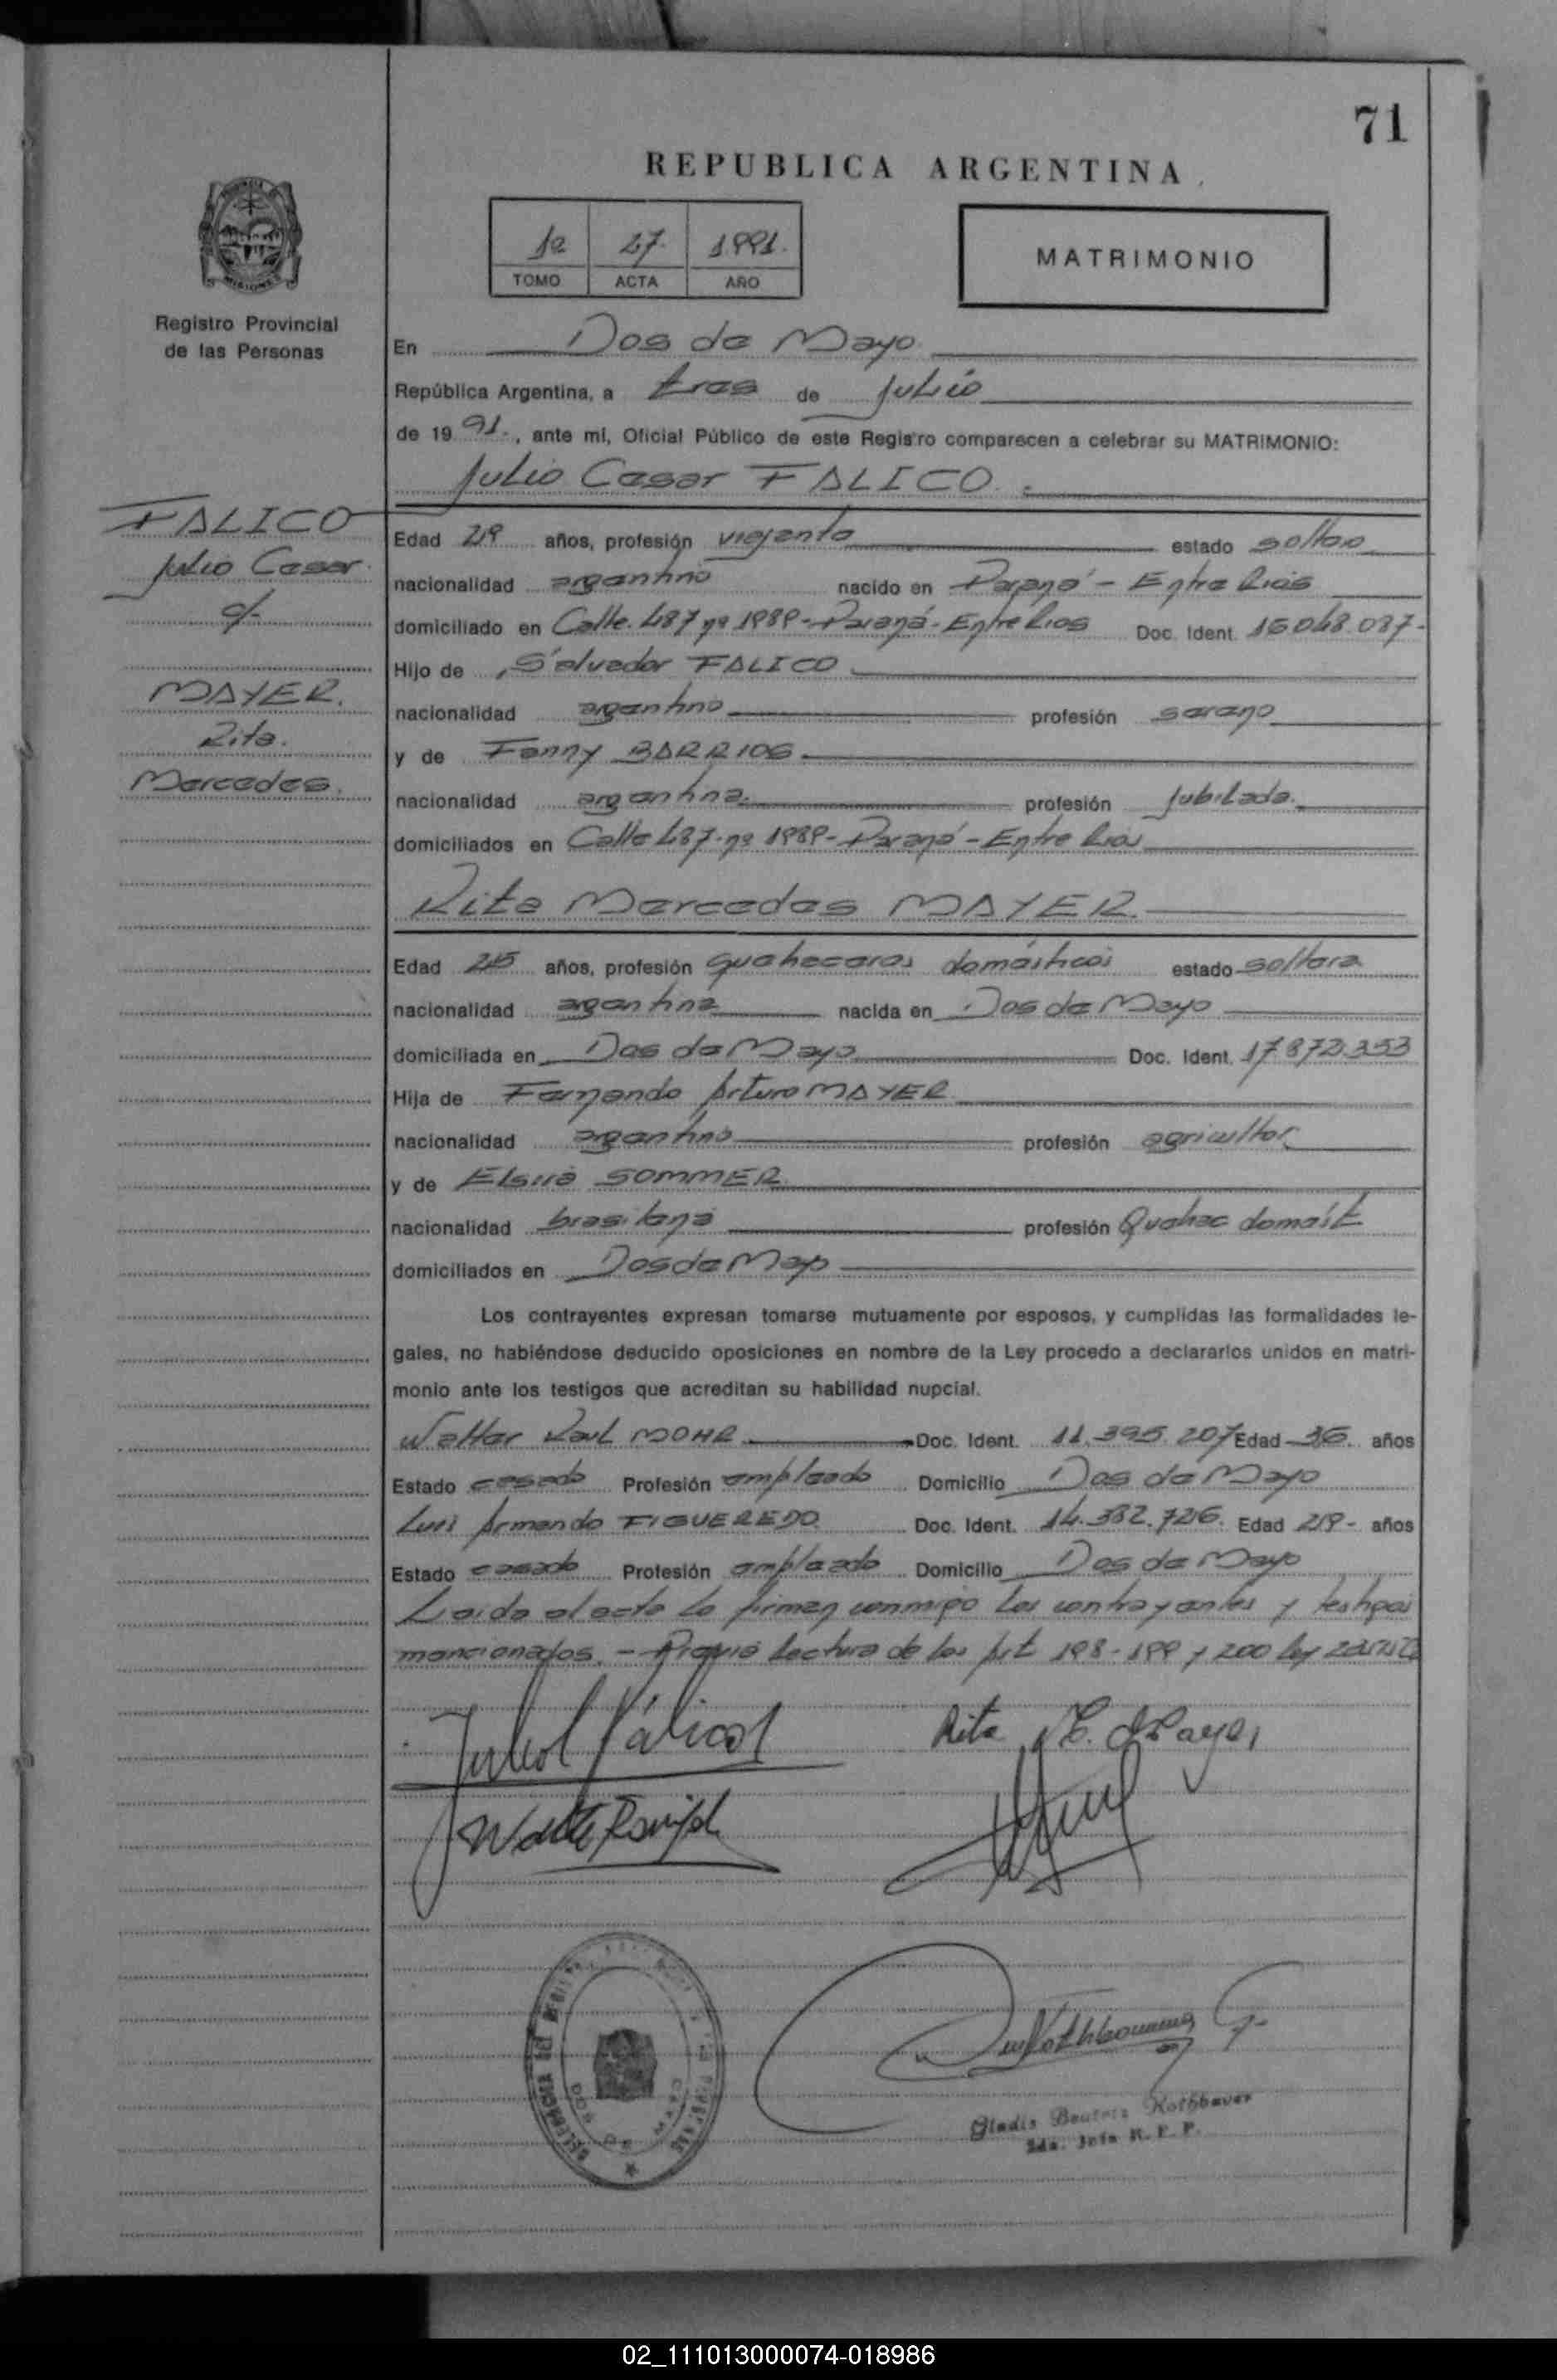 71
REPUBLICA ARGENTINA
1º 47. 1991.
TOMO ACTA AÑO
MATRIMONIO
Registro Provincial
de las Personas
En Dos de Mayo
República Argentina, a tres de Julio
de 1991., ante mi, Oficial Público de este Registro comparecen a celebrar su MATRIMONIO:
Julio Cesar FALICO.
FALICO
Julio Cesar.
c/.
MAYER.
Rita.
Mercedes.
Edad 29 años, profesión viajante estado soltero
nacionalidad argentino nacido en Paraná - Entre Rios
domiciliado en Calle 487 nº 1989 - Paraná - Entre Rios Doc. Ident. 16.048.087-
Hijo de Salvador FALICO
nacionalidad argentino profesión sereno
y de Fanny BARRIOS
nacionalidad argentina. profesión Jubilada.
domiciliados en Calle 487 - nº 1989 - Paraná - Entre Rios
Rita Mercedes MAYER.
Edad 25 años, profesión quehaceres domésticos estado soltera
nacionalidad argentina nacida en Dos de Mayo
domiciliada en Dos de Mayo Doc. Ident. 17.872.353
Hija de Fernando Arturo MAYER
nacionalidad argentino profesión agricultor
y de Elsira SOMMER
nacionalidad brasilena profesión Quehac domést
domiciliados en Dos de Mayo
Los contrayentes expresan tomarse mutuamente por esposos, y cumplidas las formalidades le-
gales, no habiéndose deducido oposiciones en nombre de la Ley procedo a declararlos unidos en matri-
monio ante los testigos que acreditan su habilidad nupcial.
Walter Raul MOHR Doc. Ident. 11.395.207 Edad 36. años
Estado casado Profesión empleado Domicilio Dos de Mayo
Luis Armando FIGUEREDO Doc. Ident. 14.382.726. Edad 29- años
Estado casado Profesión empleado Domicilio Dos de Mayo
Leida el acta la firman conmigo los contrayentes y testigos
mencionados. - Previa lectura de los Art 198 - 199 y 200 ley
Rita M. Mayer
DELEGACION DEL REGISTRO
DOS DE MAYO
Gladis Beatriz Rothbauer
R. P. P.
02_111013000074-018986